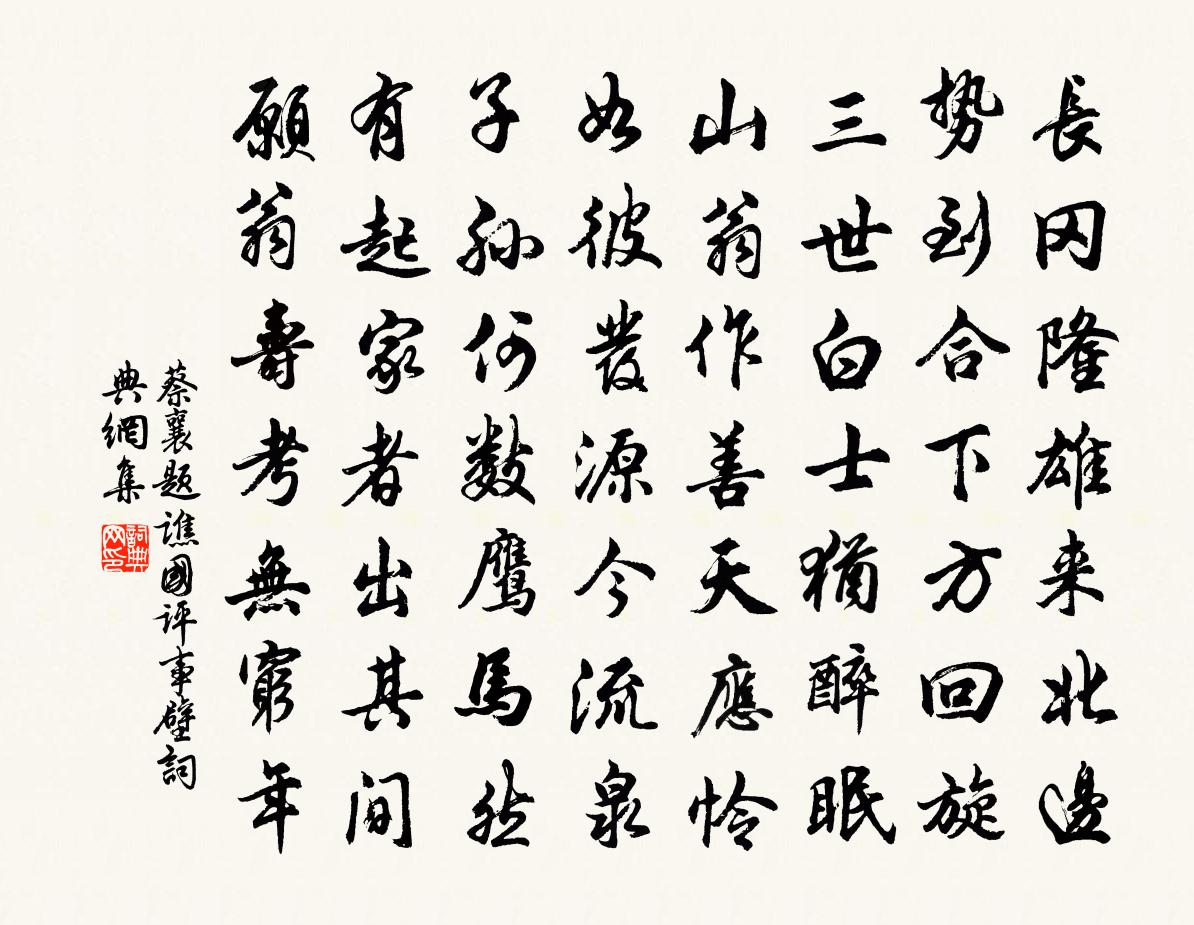 長冈隆雄来北邊
勢到合下方回旋
三世白士猶醉眠
山翁作善天應怜
如彼發源今流泉
子孙何數鹰馬然
有起家者出其间
願翁壽考無窮年
蔡襄题譙國评事壁詞
典網集
詞典
网印